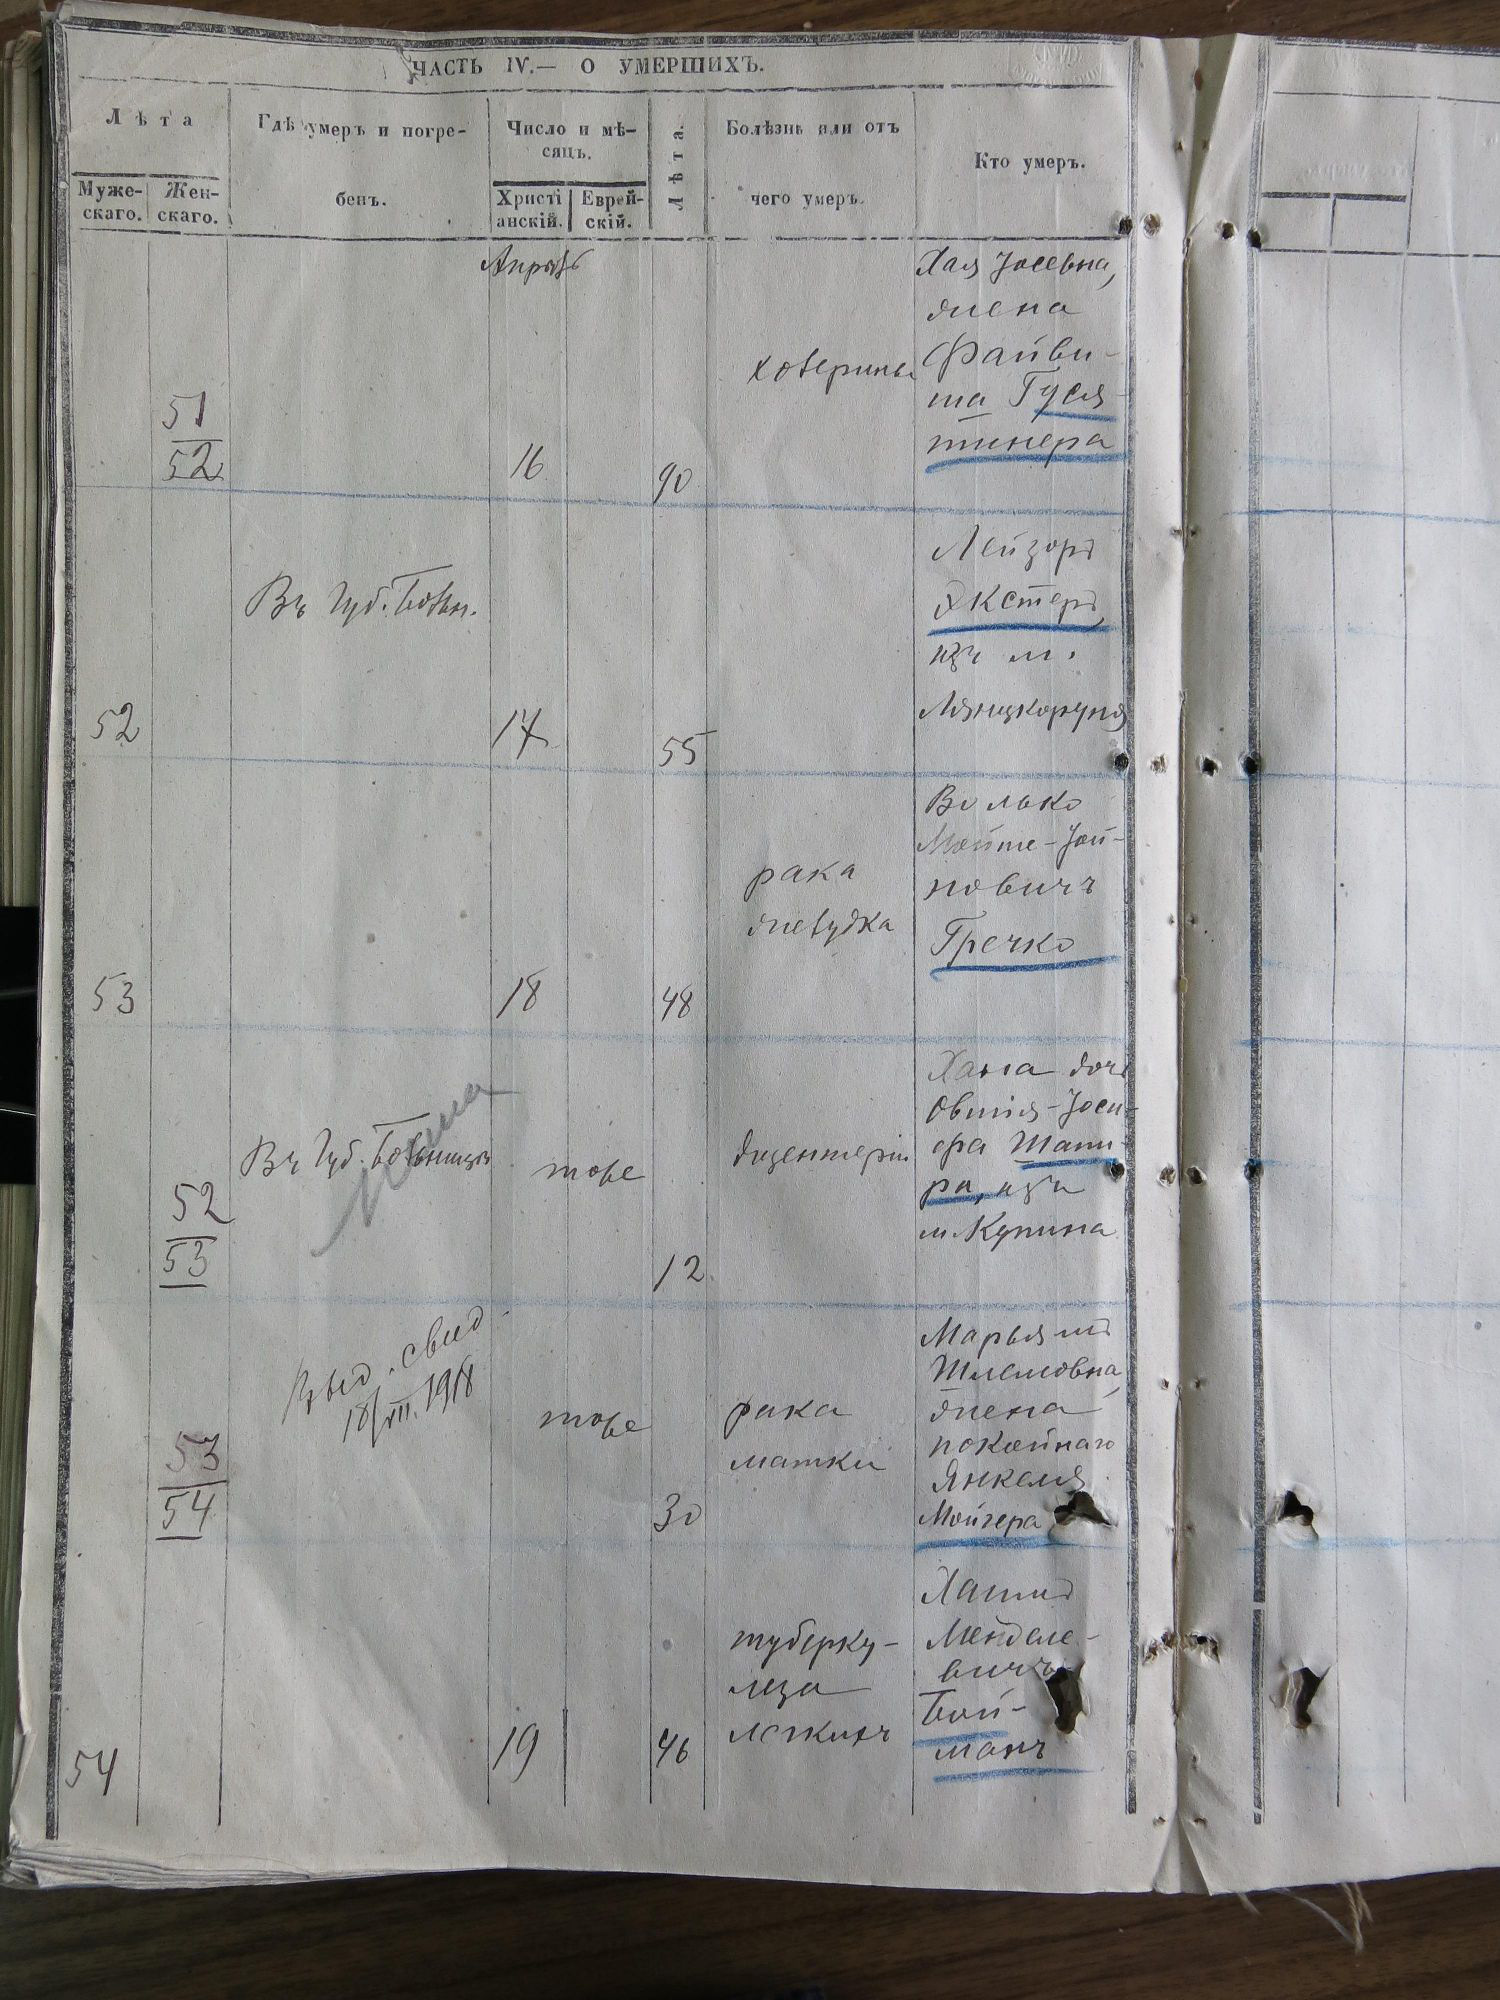 ЧАСТЬ IV.— О УМЕРШИХЪ.
Лѣта
Муже-
скаго.
Жен-
скаго.
Гдѣ умеръ и погре-
бенъ.
Число и мѣ-
сяцъ.
Христі
анскій.
Еврей-
скій.
Лѣта.
Болѣзнь или отъ
чего умеръ.
Кто умеръ.
Апрѣль
51
52
16
90
холерины
Хая Іосевна,
жена
Файви-
ша Гуся-
тинера
52
Въ Губ. Больн.
17
55
Лейзоръ
Экстеръ,
изъ м.
Лянцкоруня
53
18
48
рака
желудка
Волько
Мойше-Іой-
новичъ
Гречко
52
53
Въ Губ. Больницѣ
тоже
12
дизентеріи
Хана дочь
Овшія-Іоси-
фа Шапи-
ры, изъ
м. Купина
53
54
Выд. свид.
18/VII. 1918
тоже
30
рака
матки
Марьямъ
Шлемовна,
жена
покойнаго
Янкеля
Мойгера
54
19
46
туберку-
леза
легкихъ
Менделе-
вичъ
Бой-
манъ